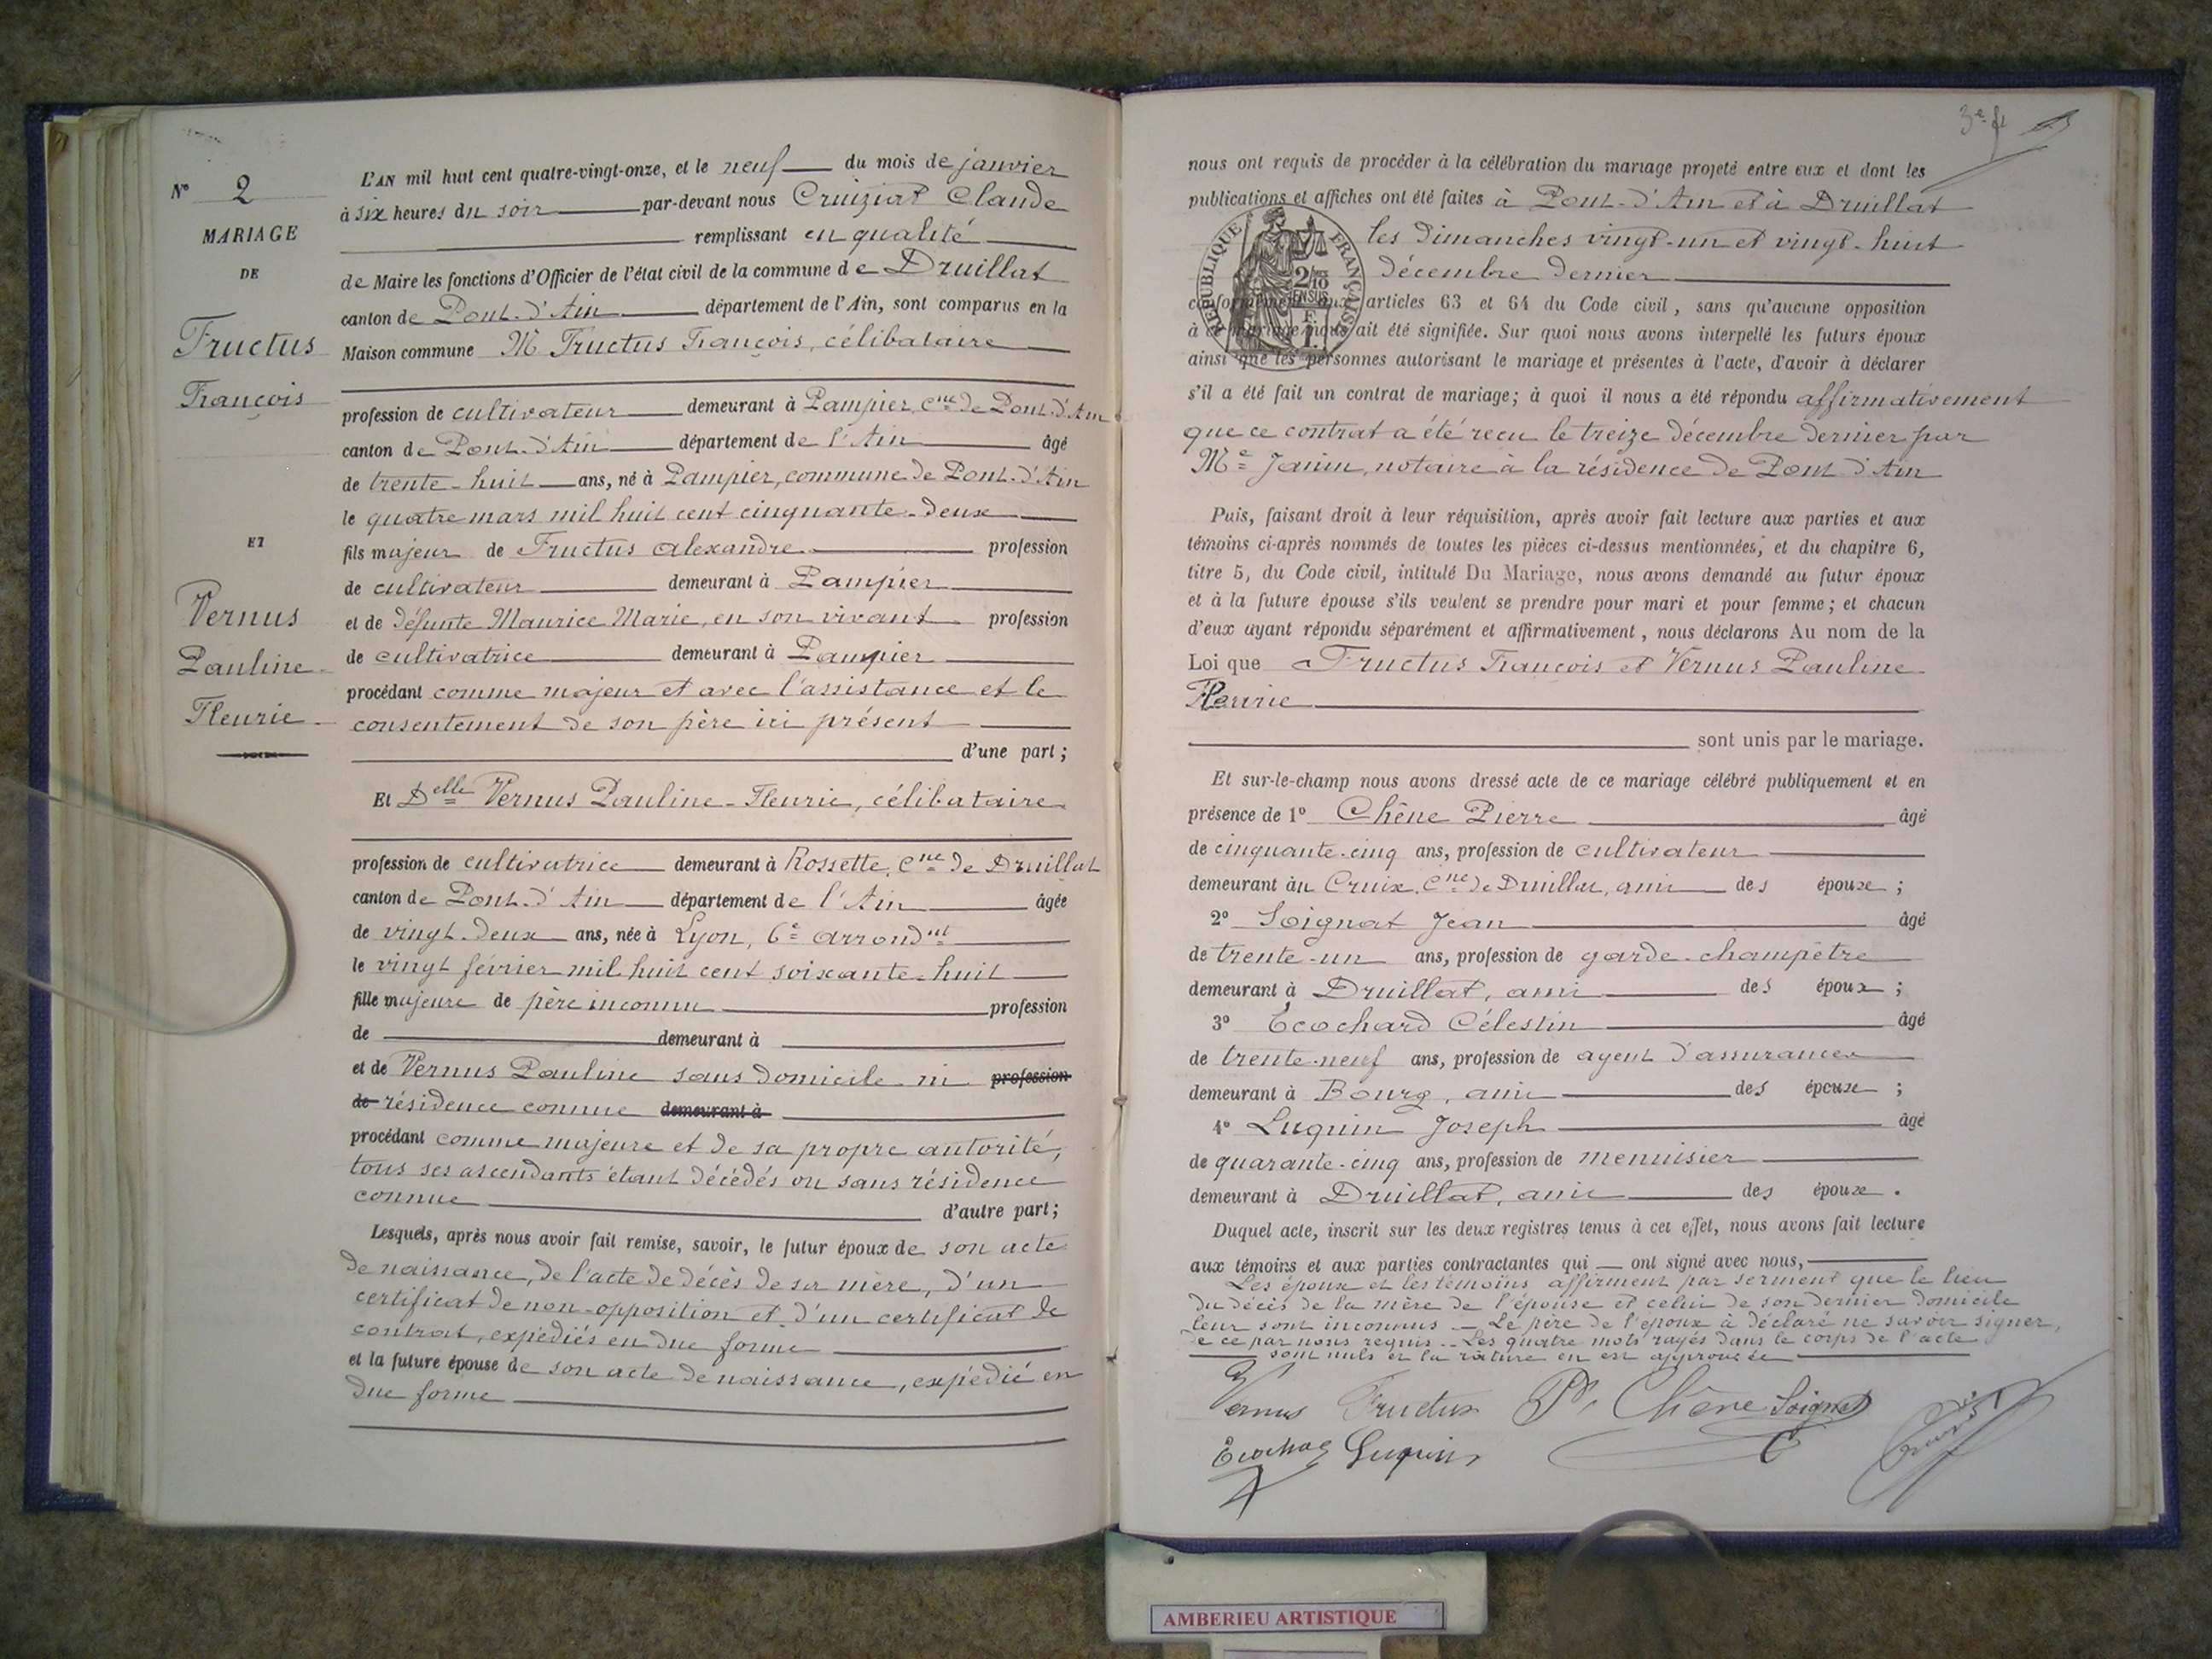 N° 2
MARIAGE
DE
Fructus
François
ET
Vernus
Pauline
Fleurie
L'AN mil huit cent quatre-vingt-onze, et le neuf du mois de janvier
à six heures du soir par-devant nous Cruiziat Claude
remplissant en qualité
de Maire les fonctions d'Officier de l'état civil de la commune de Druillat
canton de Pont-d'Ain département de l'Ain, sont comparus en la
Maison commune M Fructus François, célibataire
profession de cultivateur demeurant à Pampier, Cne de Pont-d'Ain
canton de Pont-d'Ain département de l'Ain âgé
de trente-huit ans, né à Pampier, commune de Pont-d'Ain
le quatre mars mil huit cent cinquante-deux
fils majeur de Fructus Alexandre profession
de cultivateur demeurant à Pampier
et de défunte Maurice Marie, en son vivant profession
de cultivatrice demeurant à Pampier
procédant comme majeur et avec l'assistance et le
consentement de son père ici présent
d'une part;
Et Delle Vernus Pauline-Fleurie, célibataire
profession de cultivatrice demeurant à Rossette, Cne de Druillat
canton de Pont-d'Ain département de l'Ain âgée
de vingt-deux ans, née à Lyon, 6e arrondnt
le vingt février mil huit cent soixante-huit
fille majeure de père inconnu profession
de demeurant à
et de Vernus Pauline sans domicile ni profession
de résidence connue demeurant à
procédant comme majeure et de sa propre autorité,
tous ses ascendants étant décédés ou sans résidence
connue d'autre part;
Lesquels, après nous avoir fait remise, savoir, le futur époux de son acte
de naissance, de l'acte de décès de sa mère, d'un
certificat de non-opposition et d'un certificat de
contrat, expédiés en due forme
et la future épouse de son acte de naissance, expédié en
due forme
3e f
nous ont requis de procéder à la célébration du mariage projeté entre eux et dont les
publications et affiches ont été faites à Pont-d'Ain et à Druillat
les dimanches vingt-un et vingt-huit
décembre dernier
RÉPUBLIQUE FRANÇAISE
2/10 EN SUS
conformément aux articles 63 et 64 du Code civil, sans qu'aucune opposition
à ce mariage nous ait été signifiée. Sur quoi nous avons interpellé les futurs époux
ainsi que les personnes autorisant le mariage et présentes à l'acte, d'avoir à déclarer
s'il a été fait un contrat de mariage; à quoi il nous a été répondu affirmativement
que ce contrat a été reçu le treize décembre dernier par
Me Janin, notaire à la résidence de Pont d'Ain
Puis, faisant droit à leur réquisition, après avoir fait lecture aux parties et aux
témoins ci-après nommés de toutes les pièces ci-dessus mentionnées, et du chapitre 6,
titre 5, du Code civil, intitulé Du Mariage, nous avons demandé au futur époux
et à la future épouse s'ils veulent se prendre pour mari et pour femme; et chacun
d'eux ayant répondu séparément et affirmativement, nous déclarons Au nom de la
Loi que Fructus François et Vernus Pauline
Fleurie
sont unis par le mariage.
Et sur-le-champ nous avons dressé acte de ce mariage célébré publiquement et en
présence de 1° Chêne Pierre âgé
de cinquante-cinq ans, profession de cultivateur
demeurant au Cruix, Cne de Druillat, ami des époux;
2° Soignat Jean âgé
de trente-un ans, profession de garde-champêtre
demeurant à Druillat, ami des époux;
3° Ecochard Célestin âgé
de trente-neuf ans, profession de agent d'assurances
demeurant à Bourg, ami des époux;
4° Luquin Joseph âgé
de quarante-cinq ans, profession de menuisier
demeurant à Druillat, ami des époux.
Duquel acte, inscrit sur les deux registres tenus à cet effet, nous avons fait lecture
aux témoins et aux parties contractantes qui ont signé avec nous,
Les époux et les témoins affirment par serment que le lieu
du décès de la mère de l'épouse et celui de son dernier domicile
leur sont inconnus - Le père de l'époux a déclaré ne savoir signer,
de ce par nous requis. - Les quatre mots rayés dans le corps de l'acte
sont nuls et la rature en est approuvée
Vernus Fructus P. Chêne Soignat
Ecochard Luquin
AMBERIEU ARTISTIQUE